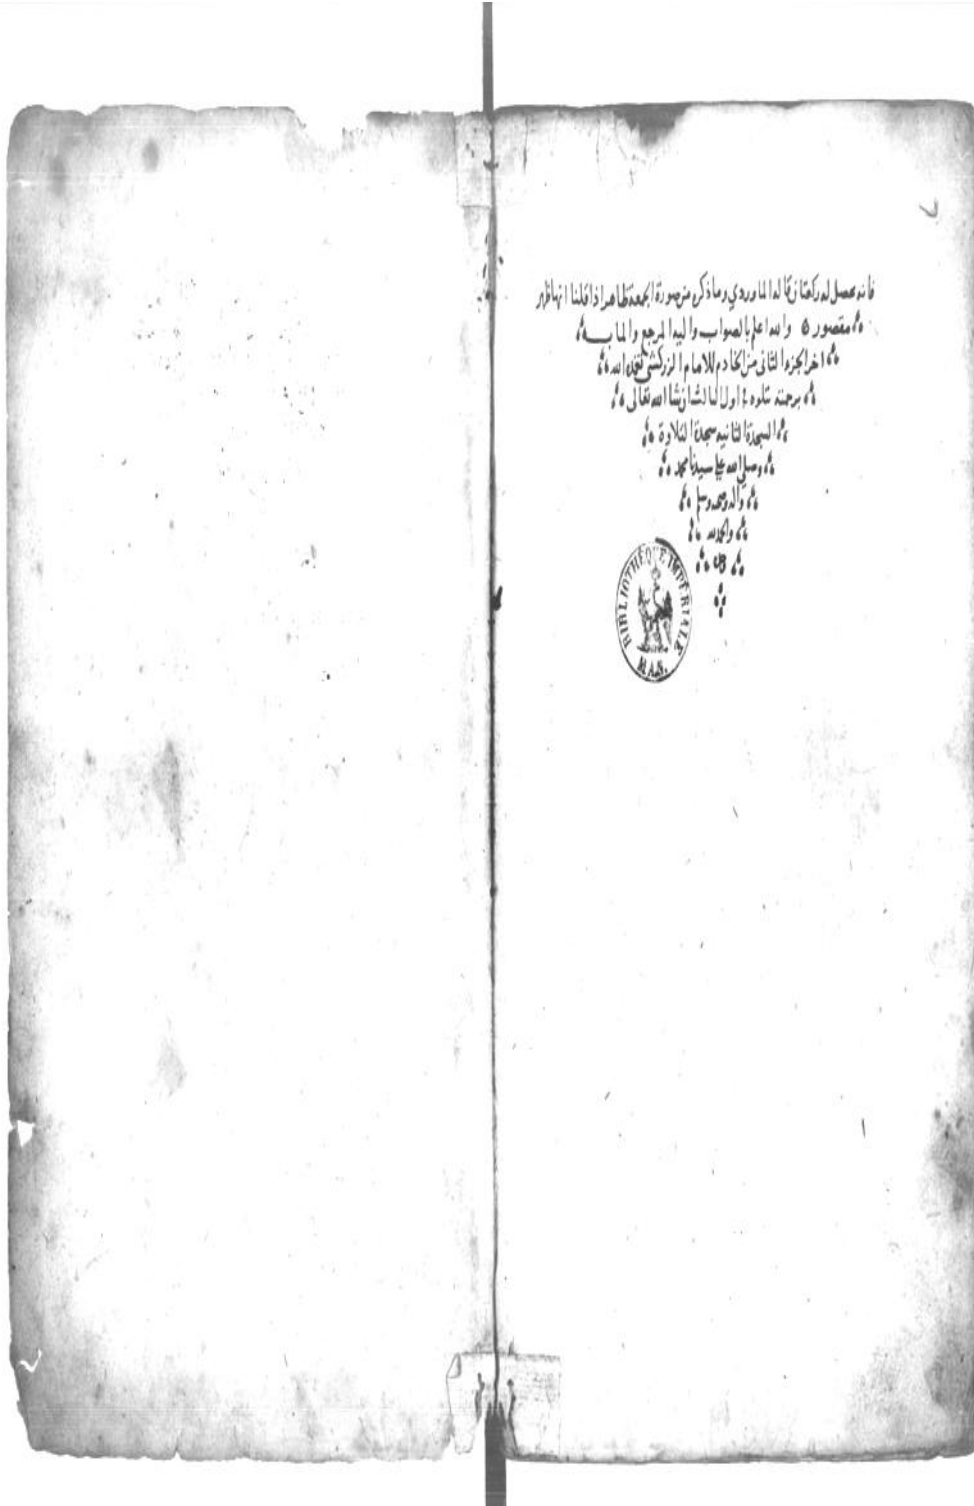 فانه يحصل له ركعتان قاله الماوردي وما ذكره من صورة الجمعة ظاهر اذا قلنا انها ظهر
مقصورة والله اعلم بالصواب واليه المرجع والماب
اخر الجزء الثانى من الخادم للامام الزركشى تغمده الله
برحمته يتلوه اول الثالث ان شا الله تعالى
السجدة الثانيه سجدة التلاوة
وصلى الله على سيدنا محمد
واله وصحبه وسلم
والحمد لله
BIBLIOTHÈQUE IMPÉRIALE
MAN.